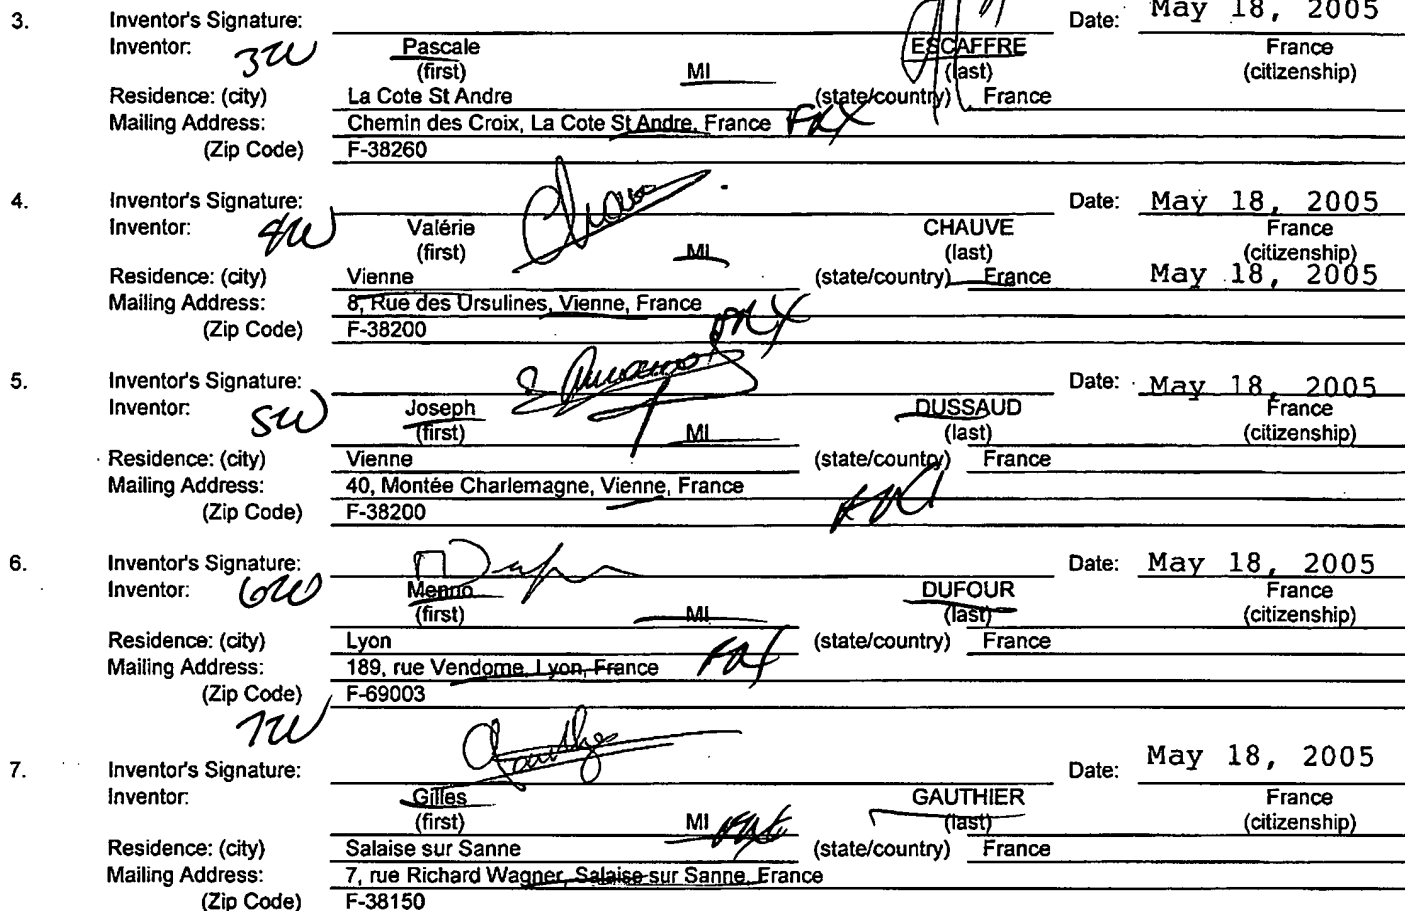 3. Inventor's Signature: Date: May 18, 2005
Inventor: 3W Pascale ESCAFFRE France
(first) MI (last) (citizenship)
Residence: (city) La Cote St Andre (state/country) France
Mailing Address: Chemin des Croix, La Cote St Andre, France FRX
(Zip Code) F-38260
4. Inventor's Signature: Date: May 18, 2005
Inventor: 4W Valérie CHAUVE France
(first) MI (last) (citizenship)
Residence: (city) Vienne (state/country) France May 18, 2005
Mailing Address: 8, Rue des Ursulines, Vienne, France FRX
(Zip Code) F-38200
5. Inventor's Signature: Date: May 18, 2005
Inventor: 5W Joseph DUSSAUD France
(first) MI (last) (citizenship)
Residence: (city) Vienne (state/country) France
Mailing Address: 40, Montée Charlemagne, Vienne, France
(Zip Code) F-38200
6. Inventor's Signature: Date: May 18, 2005
Inventor: 6W Menno DUFOUR France
(first) MI (last) (citizenship)
Residence: (city) Lyon (state/country) France
Mailing Address: 189, rue Vendome, Lyon, France FRX
(Zip Code) F-69003
7W
7. Inventor's Signature: Date: May 18, 2005
Inventor: Gilles GAUTHIER France
(first) MI (last) (citizenship)
Residence: (city) Salaise sur Sanne (state/country) France
Mailing Address: 7, rue Richard Wagner, Salaise sur Sanne, France
(Zip Code) F-38150